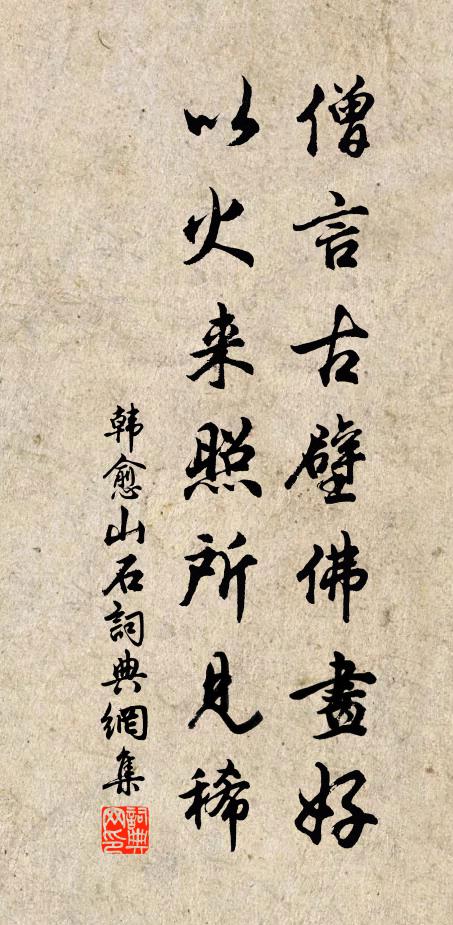 僧言古壁佛畫好
以火来照所見稀
韩愈山石詞典網集
詞典網印